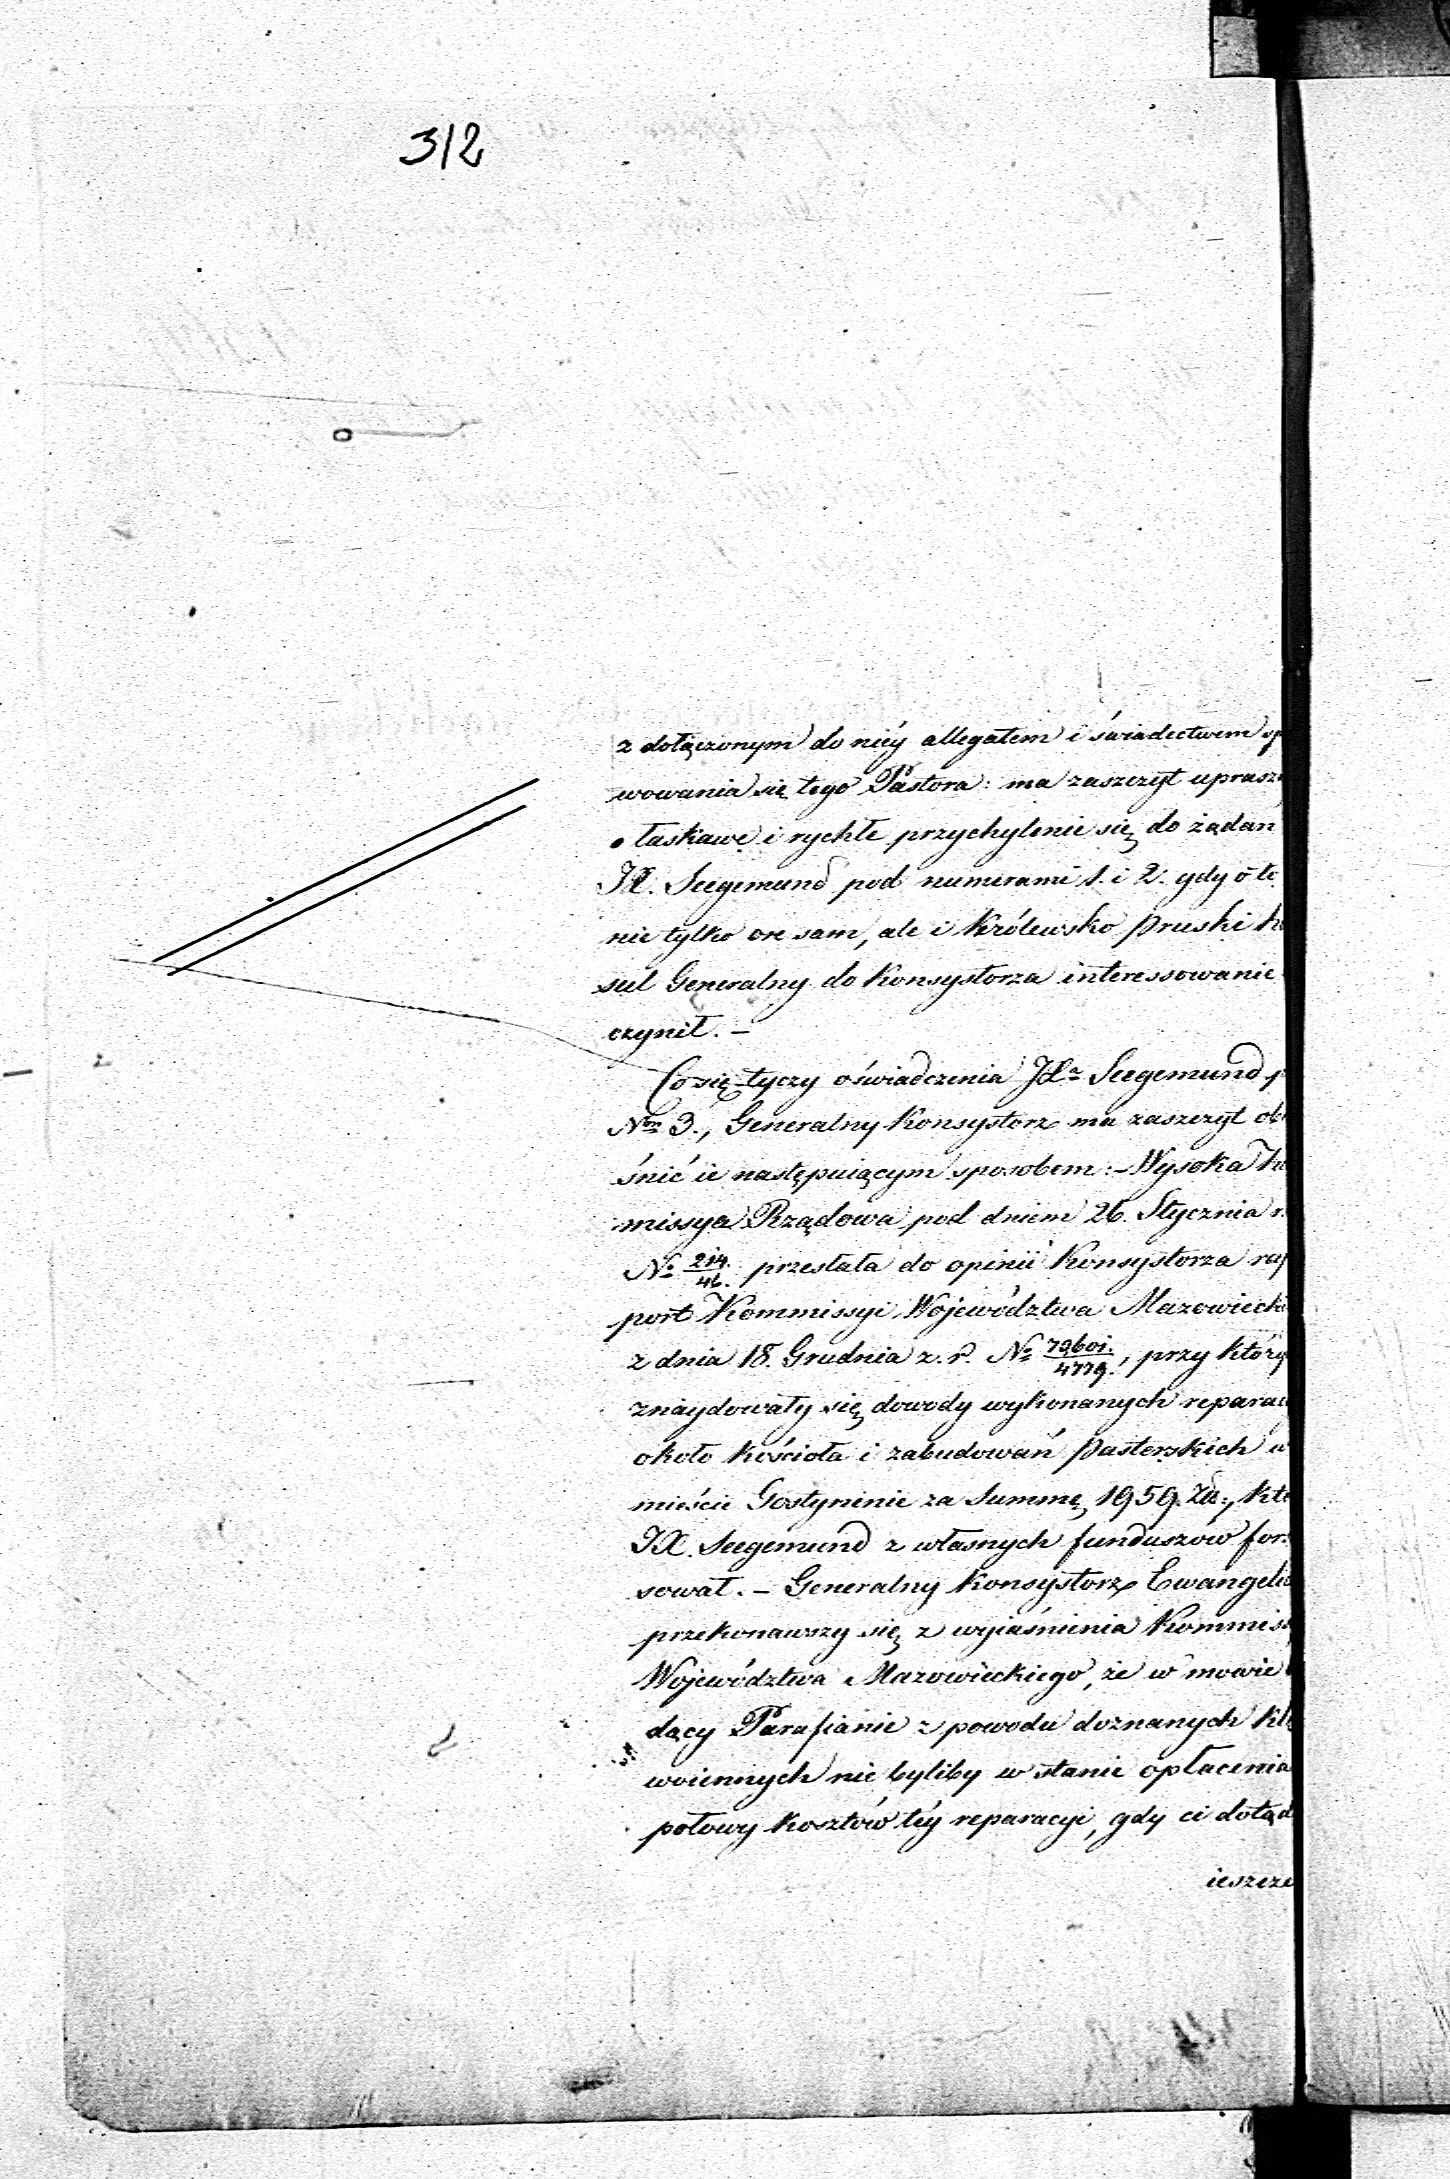 312
z dołączonym do niéy allegatem i świadectwem
wowania się tego Pastora: ma zaszczyt uprasz
o łaskawe i rychłe przychylenie się do żądań
JX. Seegemund pod numerami 1. i 2. gdy o to
nie tylko on sam, ale i Królewsko Pruski
sul Generalny do Konsystorza interessowanie
czynił. –
Co się tyczy oświadczenia JXa Seegemund
Nrm 3., Generalny Konsystorz ma zaszczyt ob
śnić ie następuiącym sposobem: – Wysoka
missya Rządowa pod dniem 26. Stycznia r.
No 214./46. przesłała do opinii Konsystorza rap
port Kommissyi Województwa Mazowiecki
z dnia 18. Grudnia z. r. No 79601./4779., przy który
znaydowały się dowody wykonanych repara
około kościoła i zabudowań Pasterskich w
mieście Gostyninie za Summę 1959. Zł:, któ
JX. Seegemund z własnych funduszów for
sował. – Generalny Konsystorz Ewangeli
przekonawszy się z wyiaśnienia Kommiss
Województwa Mazowieckiego, że w mowie
dący Parafianie z powodu doznanych klę
woiennych nie byliby w stanie opłacenia
połowy kosztów téy reparacyi, gdy ci dotąd
ieszcze